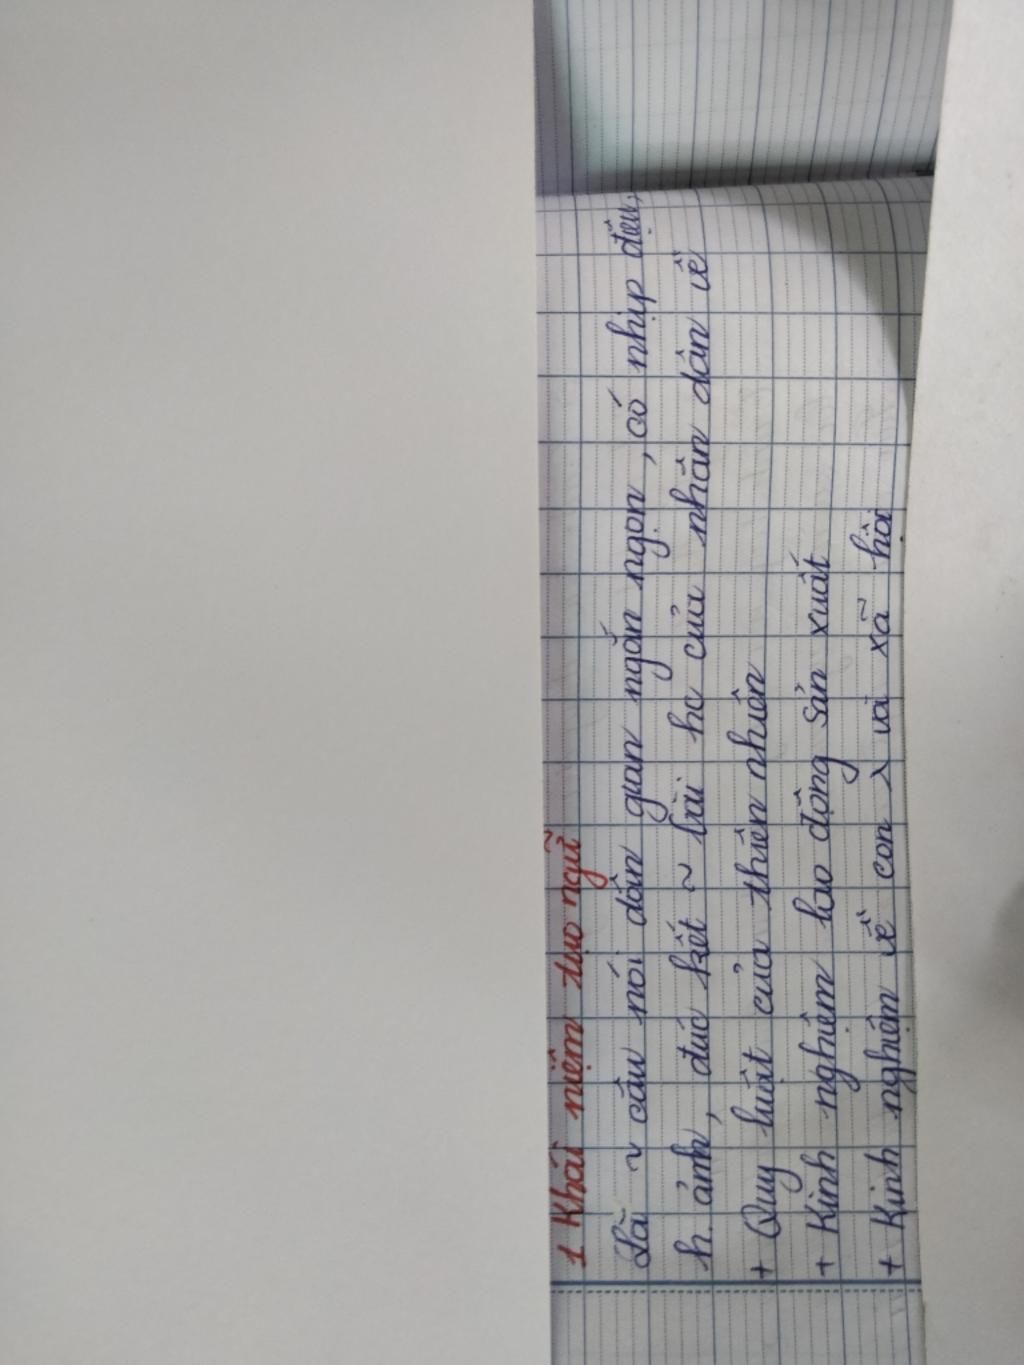 1 Khái niệm tục ngữ
Là ~ câu nói dân gian ngắn ngọn, có nhịp điệu,
h. ảnh, đúc kết ~ bài hc của nhân dân về
+ Quy luật của thiên nhiên
+ Kinh nghiệm lao động sản xuất
+ Kinh nghiệm về con λ và xã hội